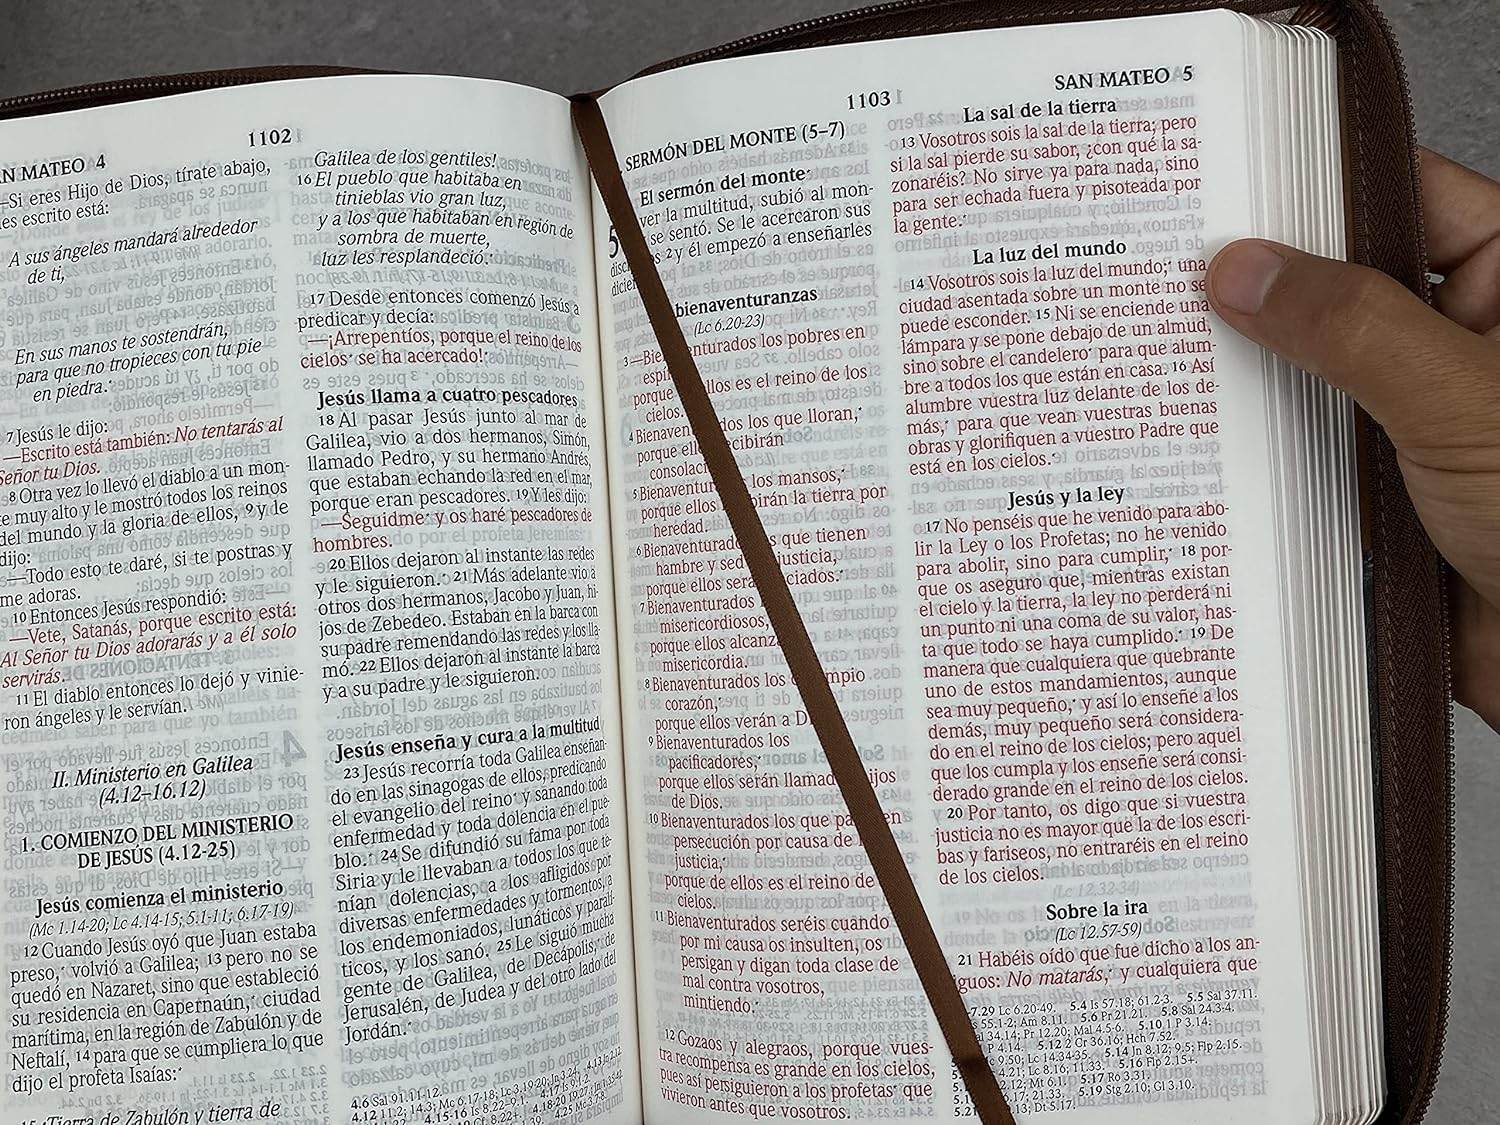 1102
N MATEO 4
—Si eres Hijo de Dios, tírate abajo,
es escrito está:
A sus ángeles mandará alrededor
de ti,
En sus manos te sostendrán,
para que no tropieces con tu pie
en piedra.
7 Jesús le dijo:
—Escrito está también: No tentarás al
Señor tu Dios.
8 Otra vez lo llevó el diablo a un mon-
te muy alto y le mostró todos los reinos
del mundo y la gloria de ellos, 9 y le
dijo:
—Todo esto te daré, si te postras y
me adoras.
10 Entonces Jesús respondió:
—Vete, Satanás, porque escrito está:
Al Señor tu Dios adorarás y a él solo
servirás.
11 El diablo entonces lo dejó y vinie-
ron ángeles y le servían.
II. Ministerio en Galilea
(4.12–16.12)
1. COMIENZO DEL MINISTERIO
DE JESÚS (4.12-25)
Jesús comienza el ministerio
(Mc 1.14-20; Lc 4.14-15; 5.1-11; 6.17-19)
12 Cuando Jesús oyó que Juan estaba
preso, volvió a Galilea; 13 pero no se
quedó en Nazaret, sino que estableció
su residencia en Capernaún, ciudad
marítima, en la región de Zabulón y de
Neftalí, 14 para que se cumpliera lo que
dijo el profeta Isaías:
15 ¡Tierra de Zabulón y tierra de
Galilea de los gentiles!
16 El pueblo que habitaba en
tinieblas vio gran luz,
y a los que habitaban en región de
sombra de muerte,
luz les resplandeció.
17 Desde entonces comenzó Jesús a
predicar y decía:
—¡Arrepentíos, porque el reino de los
cielos se ha acercado!
Jesús llama a cuatro pescadores
18 Al pasar Jesús junto al mar de
Galilea, vio a dos hermanos, Simón,
llamado Pedro, y su hermano Andrés,
que estaban echando la red en el mar,
porque eran pescadores. 19 Y les dijo:
—Seguidme y os haré pescadores de
hombres.
20 Ellos dejaron al instante las redes
y le siguieron. 21 Más adelante vio a
otros dos hermanos, Jacobo y Juan, hi-
jos de Zebedeo. Estaban en la barca con
su padre remendando las redes y los lla-
mó. 22 Ellos dejaron al instante la barca
y a su padre y le siguieron.
Jesús enseña y cura a la multitud
23 Jesús recorría toda Galilea enseñan-
do en las sinagogas de ellos, predicando
el evangelio del reino y sanando toda
enfermedad y toda dolencia en el pue-
blo. 24 Se difundió su fama por toda
Siria y le llevaban a todos los que te-
nían dolencias, a los afligidos por
diversas enfermedades y tormentos, a
los endemoniados, lunáticos y paralí-
ticos, y los sanó. 25 Le siguió mucha
gente de Galilea, de Decápolis, de
Jerusalén, de Judea y del otro lado del
Jordán.
4.6 Sal 91.11-12.
1103
SAN MATEO 5
SERMÓN DEL MONTE (5–7)
El sermón del monte
5 ver la multitud, subió al mon-
se sentó. Se le acercaron sus
disc s 2 y él empezó a enseñarles
dicien
bienaventuranzas
(Lc 6.20-23)
3 —Bien nturados los pobres en
espíri
porque ellos es el reino de los
cielos.
4 Bienaven dos los que lloran,
porque ell cibirán
consolac
5 Bienaventur los mansos,
porque ellos birán la tierra por
heredad.
6 Bienaventurado s que tienen
hambre y sed justicia,
porque ellos será ciados.
7 Bienaventurados l
misericordiosos,
porque ellos alcanza
misericordia.
8 Bienaventurados los impio
corazón,
porque ellos verán a Di
9 Bienaventurados los
pacificadores,
porque ellos serán llamad hijos
de Dios.
10 Bienaventurados los que pa en
persecución por causa de
justicia,
porque de ellos es el reino de
cielos.
11 Bienaventurados seréis cuando
por mi causa os insulten, os
persigan y digan toda clase de
mal contra vosotros,
mintiendo.
12 Gozaos y alegraos, porque vues-
tra recompensa es grande en los cielos,
pues así persiguieron a los profetas que
vivieron antes que vosotros.
La sal de la tierra
13 Vosotros sois la sal de la tierra; pero
si la sal pierde su sabor, ¿con qué la sa-
zonaréis? No sirve ya para nada, sino
para ser echada fuera y pisoteada por
la gente.
La luz del mundo
14 Vosotros sois la luz del mundo; una
ciudad asentada sobre un monte no se
puede esconder. 15 Ni se enciende una
lámpara y se pone debajo de un almud,
sino sobre el candelero para que alum-
bre a todos los que están en casa. 16 Así
alumbre vuestra luz delante de los de-
más, para que vean vuestras buenas
obras y glorifiquen a vuestro Padre que
está en los cielos.
Jesús y la ley
17 No penséis que he venido para abo-
lir la Ley o los Profetas; no he venido
para abolir, sino para cumplir, 18 por-
que os aseguro que, mientras existan
el cielo y la tierra, la ley no perderá ni
un punto ni una coma de su valor, has-
ta que todo se haya cumplido. 19 De
manera que cualquiera que quebrante
uno de estos mandamientos, aunque
sea muy pequeño, y así lo enseñe a los
demás, muy pequeño será considera-
do en el reino de los cielos; pero aquel
que los cumpla y los enseñe será consi-
derado grande en el reino de los cielos.
20 Por tanto, os digo que si vuestra
justicia no es mayor que la de los escri-
bas y fariseos, no entraréis en el reino
de los cielos.
Sobre la ira
(Lc 12.57-59)
21 Habéis oído que fue dicho a los an-
guos: No matarás, y cualquiera que
7.29 Lc 6.20-49. 5.4 Is 57.18; 61.2-3. 5.5 Sal 37.11.
s 55.1-2; Am 8.11. 5.6 Pr 21.21. 5.8 Sal 24.3-4.
al 34.14; Pr 12.20; Mal 4.5-6. 5.10 1 P 3.14;
P 4.14. 5.12 2 Cr 36.16; Hch 7.52.
9.50; Lc 14.34-35. 5.14 Jn 8.12; 9.5; Flp 2.15.
4.21; Lc 8.16; 11.33. 5.16 Flp 2.15+.
2.12; Mt 6.1. 5.17 Ro 3.31.
6.17; 21.33. 5.19 Stg 2.10; Gl 3.10.
5.21 13; Dt 5.17.